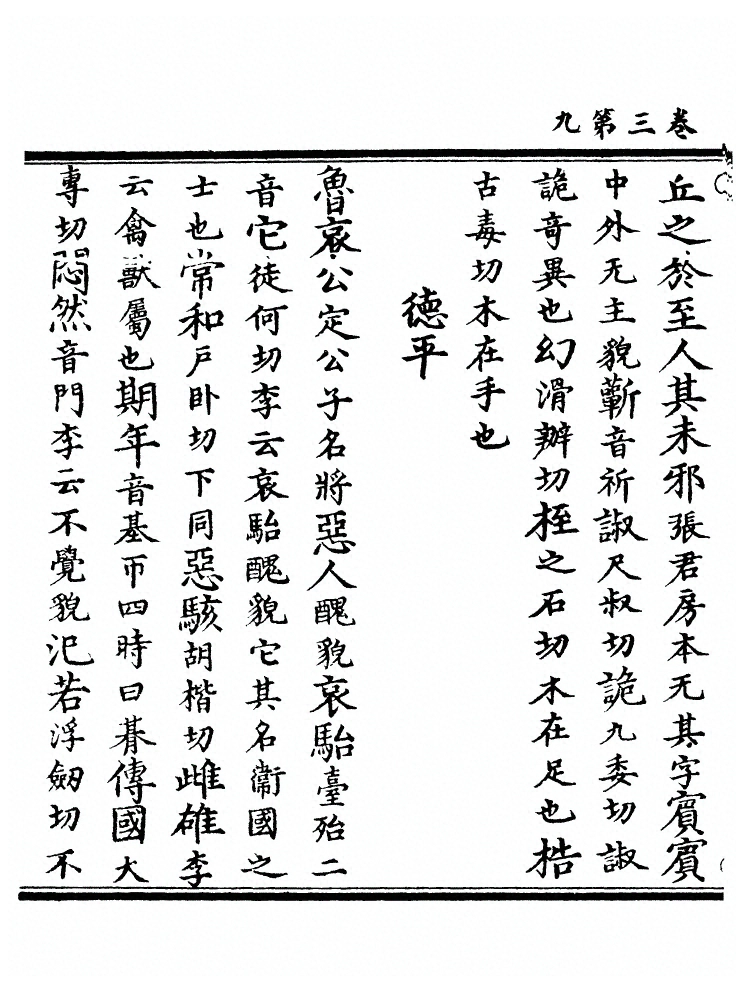 卷三第九
丘之於至人其未邪張君房本无其字賓賓
中外无主貌蘄音祈諔尺叔切詭九委切諔
詭竒異也幻滑辦切桎之石切木在足也梏
古毒切木在手也
德平
魯哀公定公子名將惡人醜貌哀駘臺殆二
音它徒何切李云哀駘醜貌它其名衞國之
士也常和戶卧切下同惡駭胡楷切雌雄李
云禽獸屬也期年音基帀四時曰朞傳國大
專切悶然音門李云不覺貌氾若浮劒切不